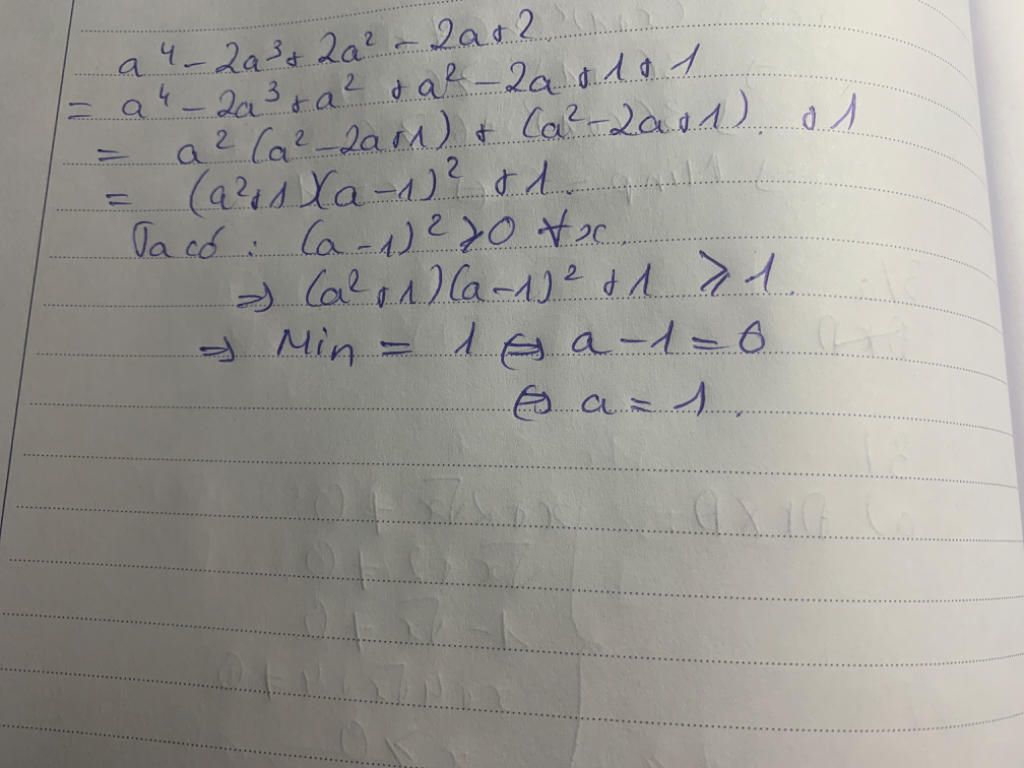 a⁴ - 2a³ + 2a² - 2a + 2
= a⁴ - 2a³ + a² + a² - 2a + 1 + 1
= a² (a² - 2a + 1) + (a² - 2a + 1) + 1
= (a² + 1)(a - 1)² + 1.
Ta có : (a - 1)² ≥ 0 ∀x.
⇒ (a² + 1)(a - 1)² + 1 ≥ 1.
⇒ Min = 1 ⇔ a - 1 = 0
⇔ a = 1.